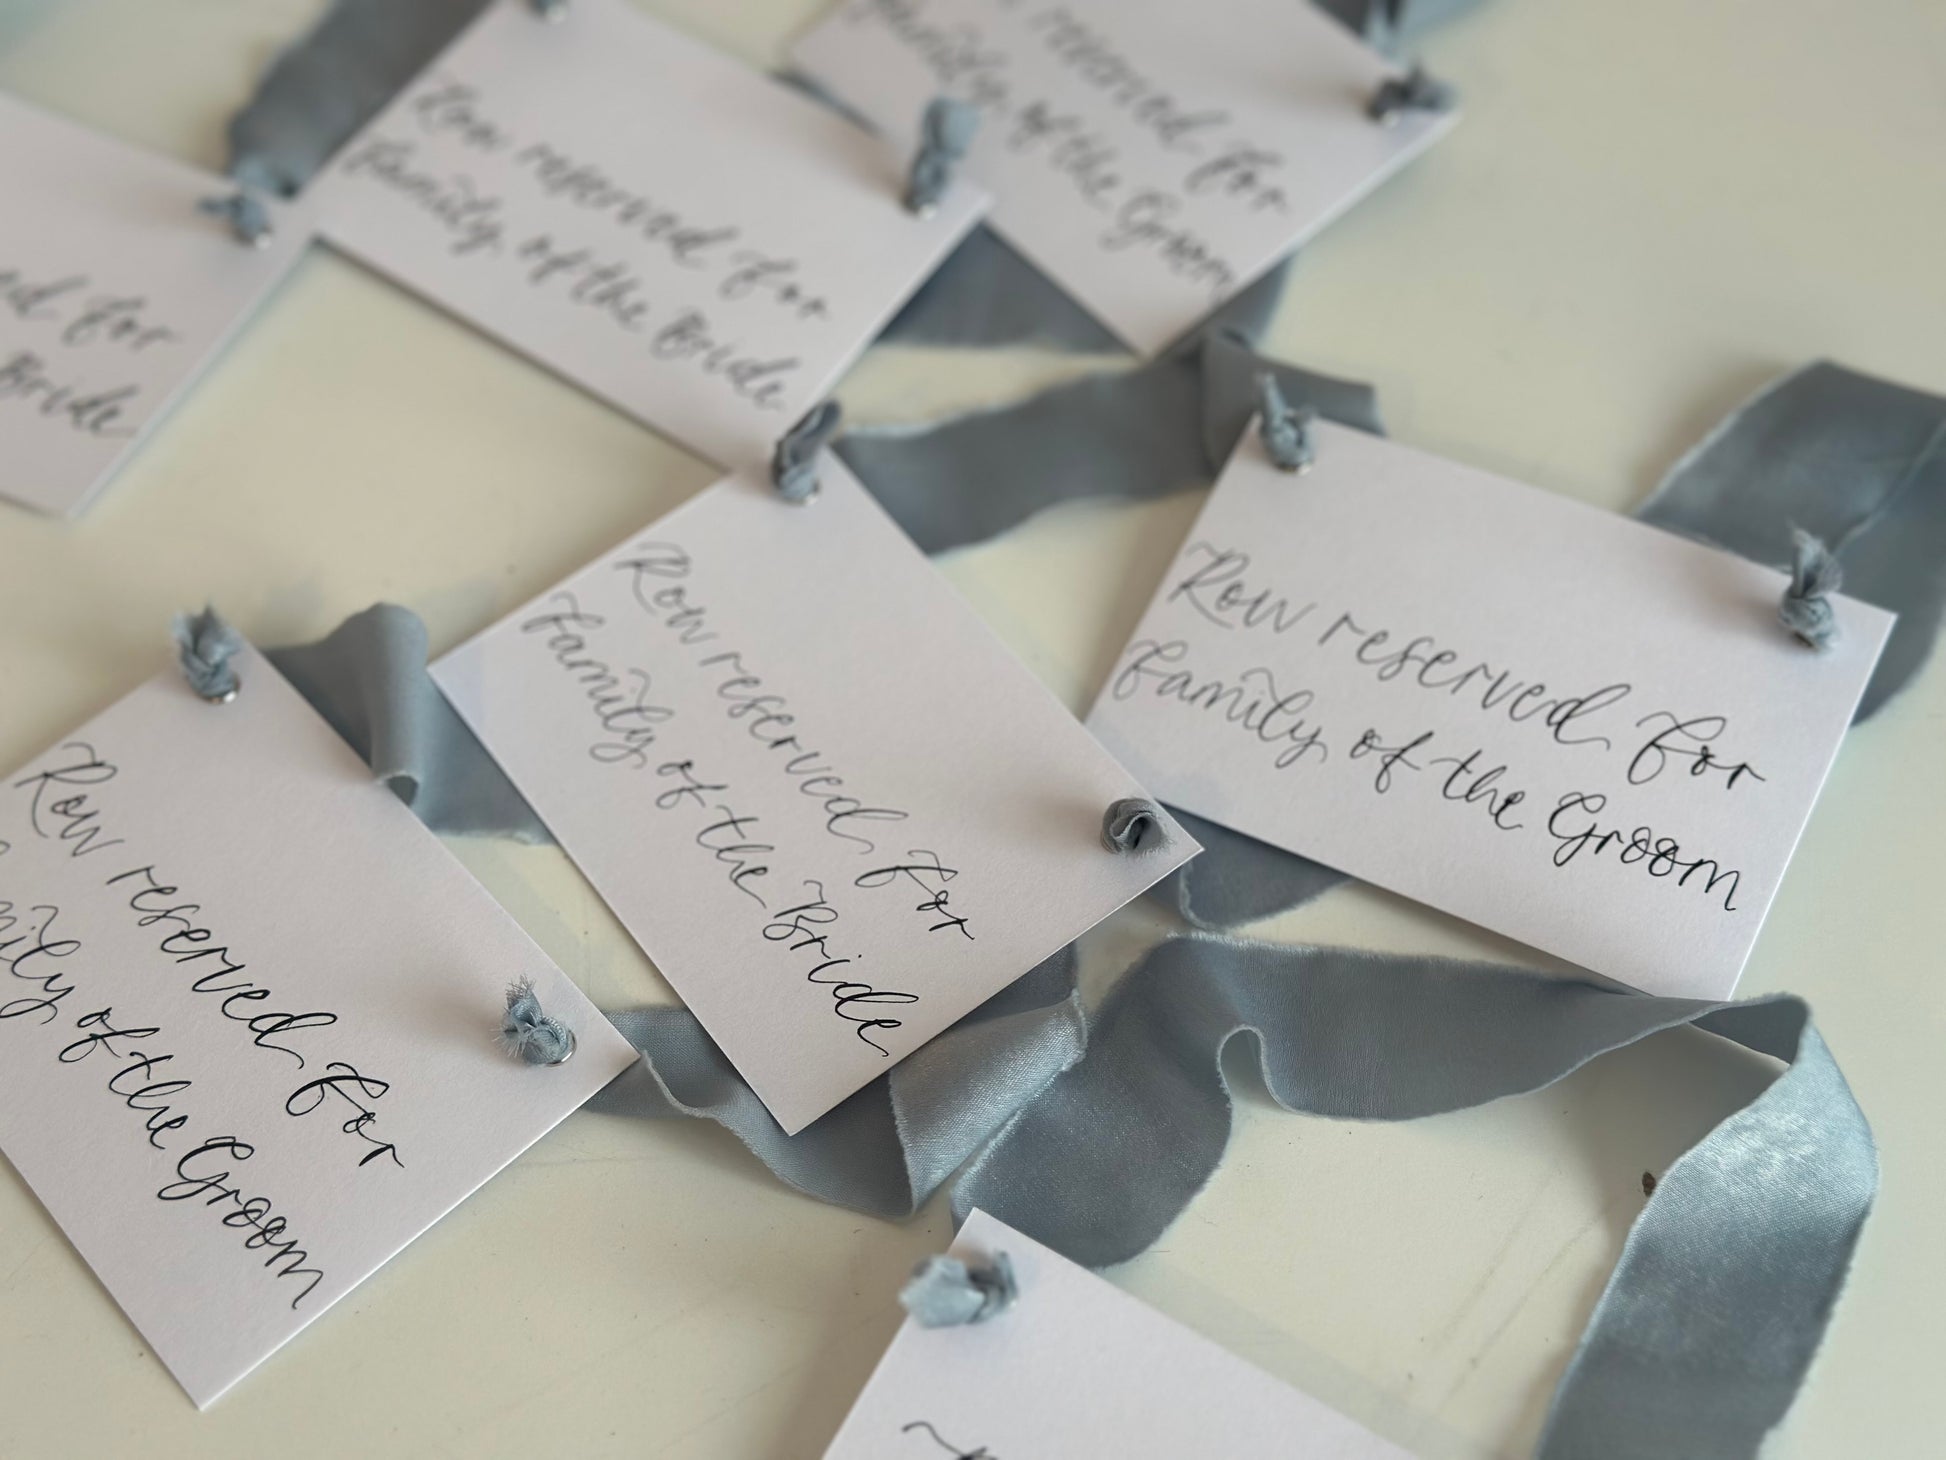 reserved for
Family of the Groom
Row reserved for
Family of the Bride
ed for
Bride
Row reserved for
Family of the Groom
Row reserved for
Family of the Bride
Row reserved for
mily of the Groom